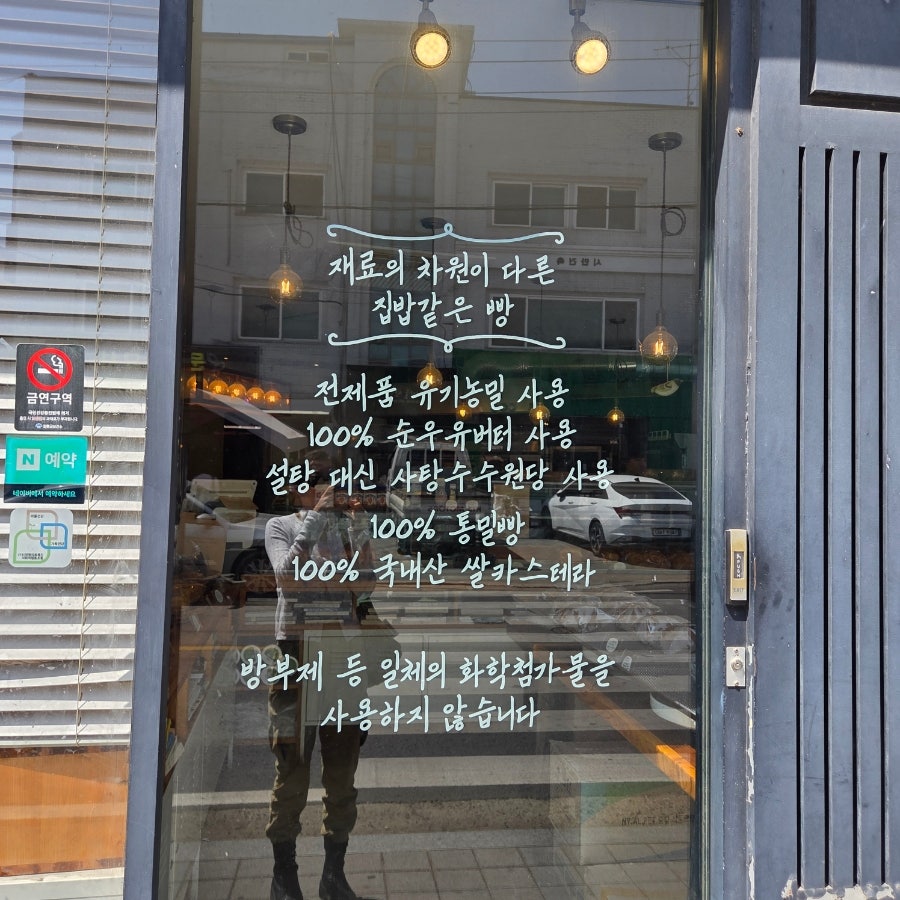 재료의 차원이 다른
집밥같은 빵
전제품 유기농밀 사용
100% 순우유버터 사용
설탕 대신 사탕수수원당 사용
100% 통밀빵
100% 국내산 쌀카스테라
방부제 등 일체의 화학첨가물을
사용하지 않습니다
금연구역
N 예약
네이버에서 예약하세요